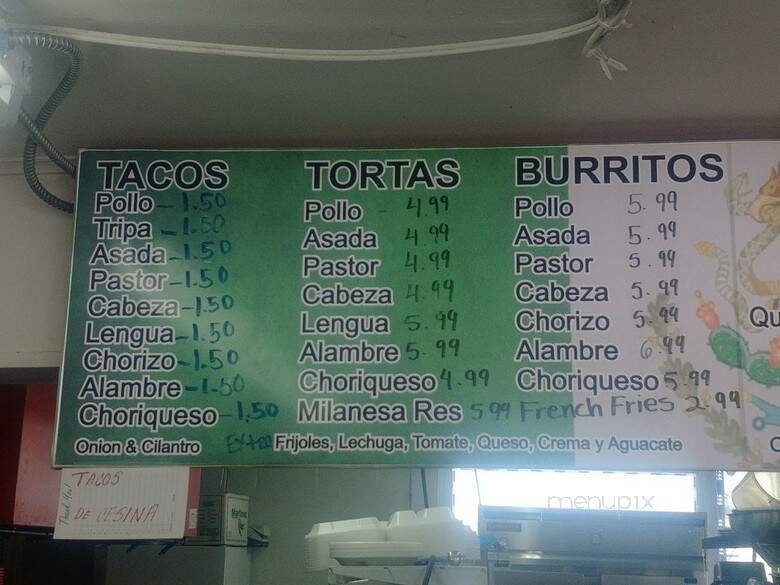 TACOS
Pollo - 1.50
Tripa - 1.50
Asada - 1.50
Pastor - 1.50
Cabeza - 1.50
Lengua - 1.50
Chorizo - 1.50
Alambre - 1.50
Choriqueso - 1.50
Onion & Cilantro
TORTAS
Pollo - 4.99
Asada 4.99
Pastor 4.99
Cabeza 4.99
Lengua 5.99
Alambre 5.99
Choriqueso 4.99
Milanesa Res 5.99
Frijoles, Lechuga, Tomate, Queso, Crema y Aguacate
BURRITOS
Pollo 5.99
Asada 5.99
Pastor 5.99
Cabeza 5.99
Chorizo 5.99
Alambre 6.99
Choriqueso 5.99
French Fries 2.99
Qu
TACOS
DE CESINA
Thank You!
menupix